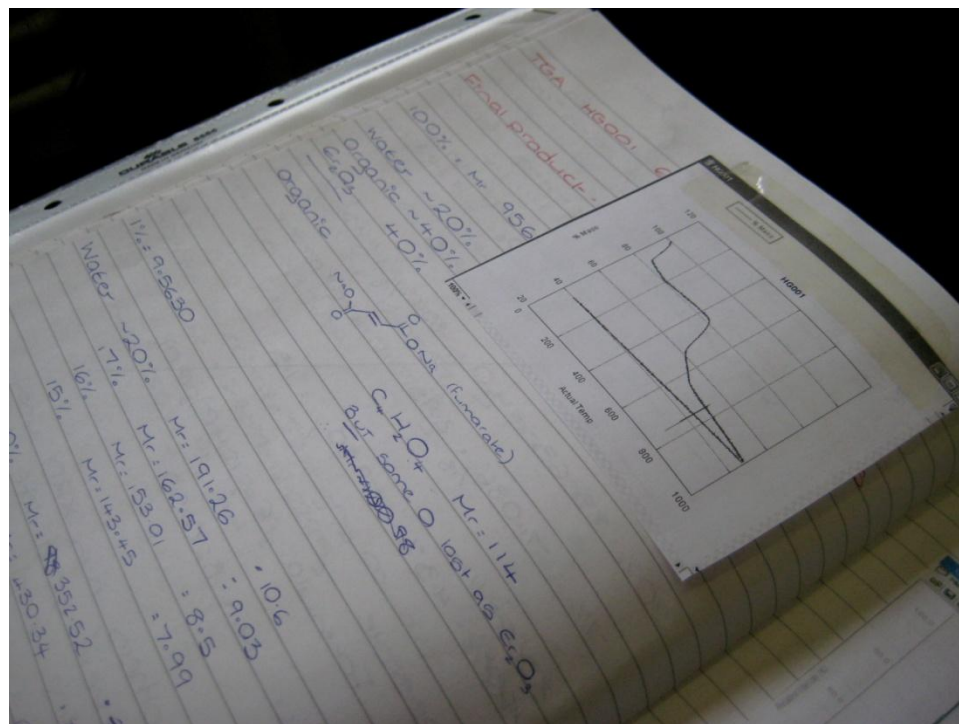 TGA HG001
Final product.
100% = Mr 956
Water ~20%
Organic ~40%
Cr₂O₃ 40%
Organic
NaO
O
O
ONa (fumarate)
C₄H₂O₄ Mr = 114
BUT some O lost as Cr₂O₃
98
1% = 9.5630
Water ~20% Mr = 191.26 = 10.6
17% Mr = 162.57 = 9.03
16% Mr = 153.01 = 8.5
15% Mr = 143.45 = 7.99
Mr = 352.52
430.34
DURABLE
HG001
HG001
% Mass
% Mass
120
100
80
60
40
20
0
200
400
600
800
1000
Actual Temp
100%